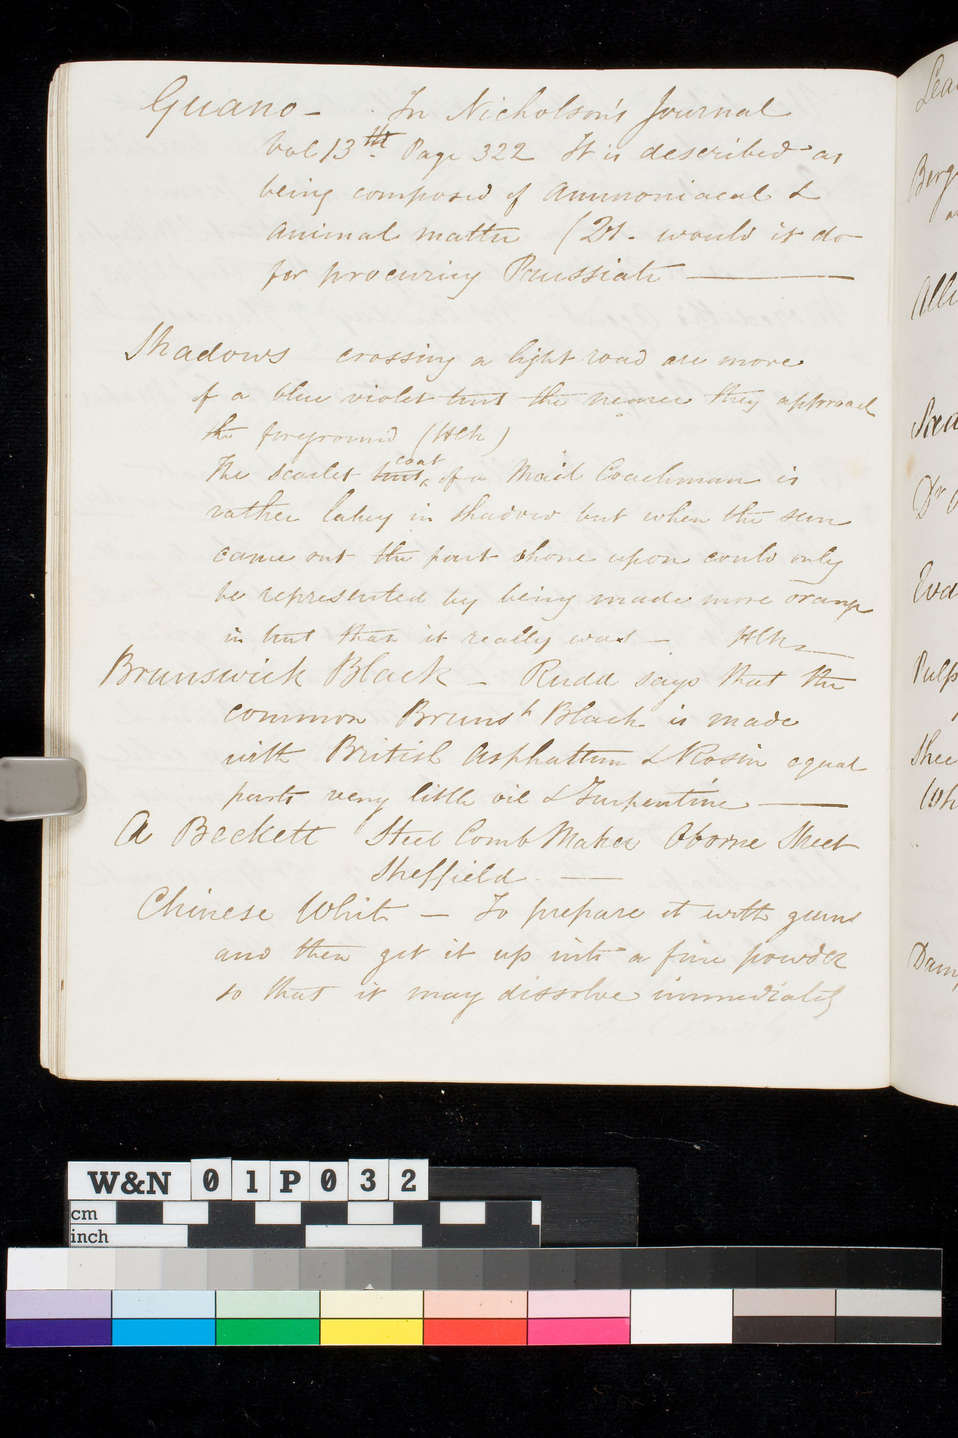 Guano – In Nicholson's Journal
Vol 13th Page 322 It is described as
being composed of Ammoniacal &
Animal matter (Qt. would it do
for procuring Prussiate
Shadows crossing a light road are more
of a blue violet tint the nearer they approach
the foreground (HCN)
The scarlet tint coat of a Mail Coachman is
rather lakey in shadow but when the sun
came out the part shone upon could only
be represented by being made more orange
in tint than it really was –
Brunswick Black – Rudd says that the
common Brunsk Black is made
with British Asphaltum & Rosin equal
parts very little oil & Turpentine
A Beckett Steel Comb Maker Oborne Street
Sheffield
Chinese White – To prepare it with gums
and then get it up into a fine powder
so that it may dissolve immediately
Allu
Eva
Pulp
Shee
Dam
W&N 01P032
cm
inch